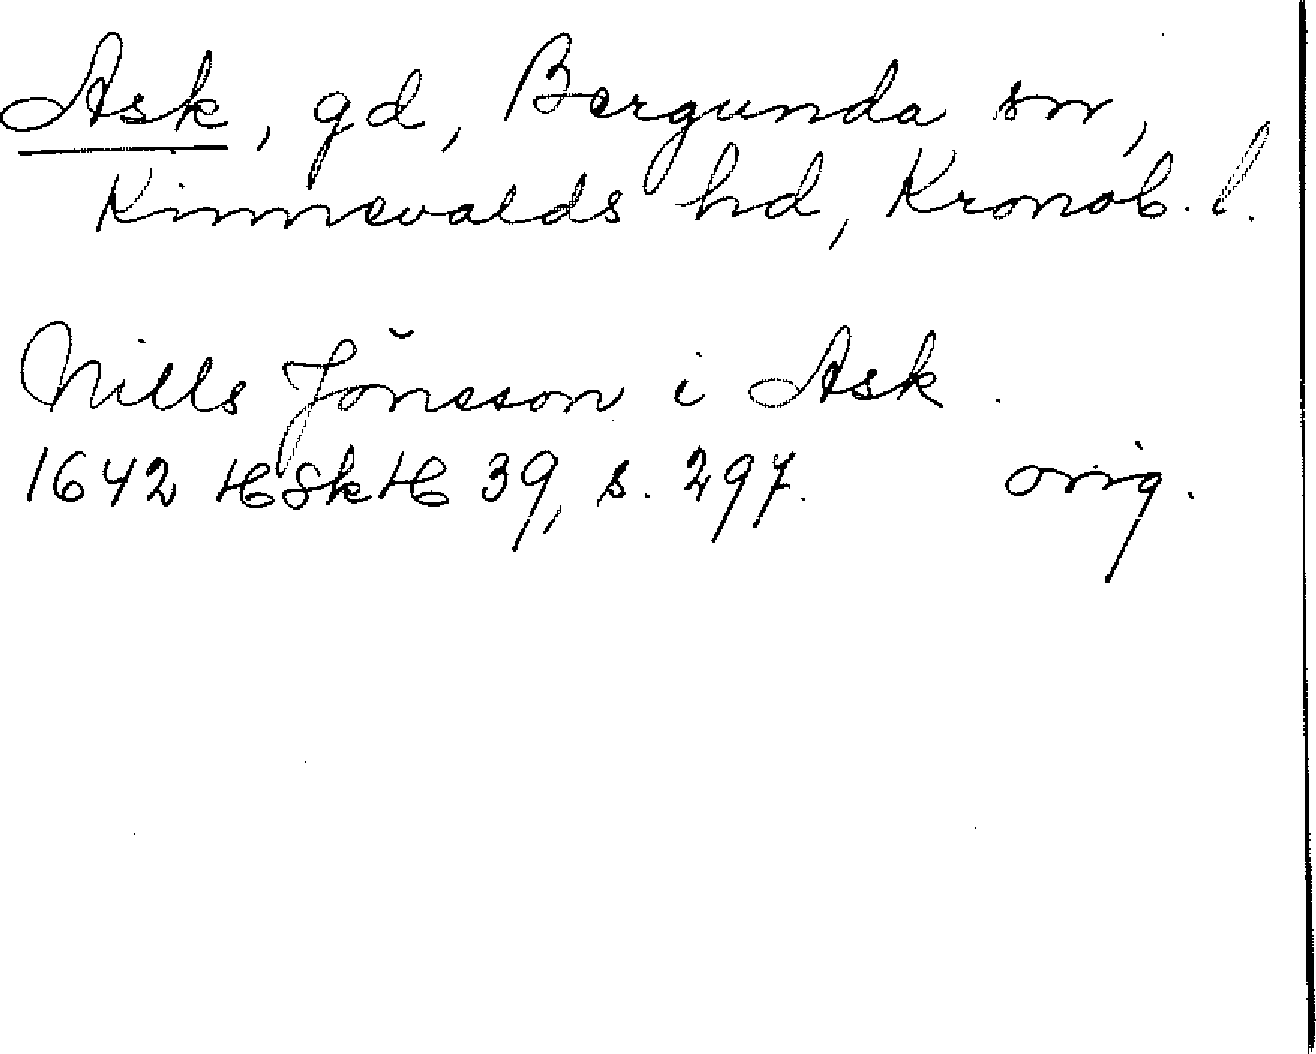 Ask, gd, Bergunda sn,
Kinnevalds hd, Kronob. l.
Nills Jönsson i Ask.
1642 HSkH 39, s. 297. orig.